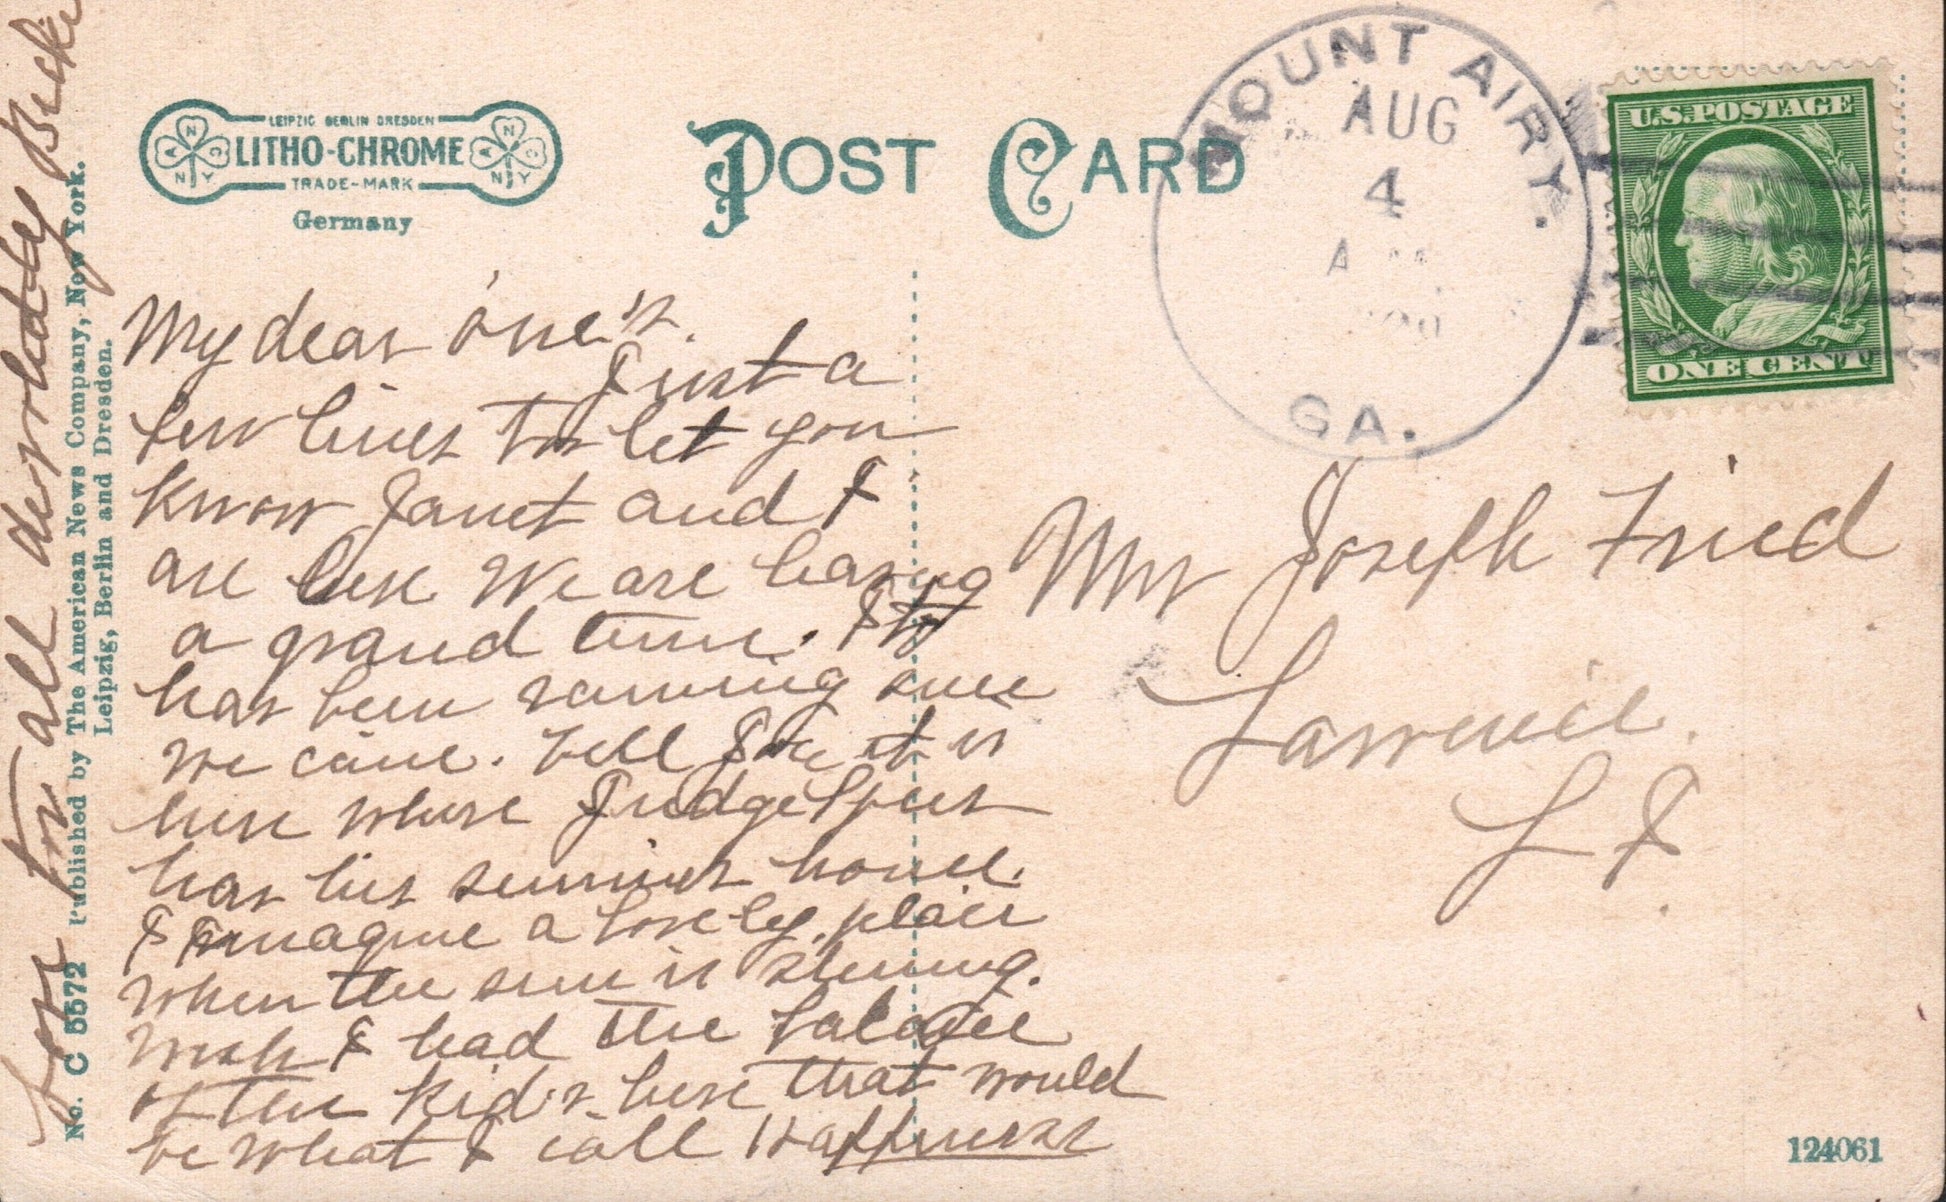 LEIPZIG BERLIN DRESDEN
LITHO-CHROME
TRADE-MARK
Germany
POST CARD
MOUNT AIRY.
AUG
4
GA.
U.S. POSTAGE
ONE CENT
My dear one's.
Just a
few lines to let you
know Janet and I
are here We are having
a grand time. It
has been raining since
we came. tell Joe it is
here where Judge Speer
has his summer home.
I imagine a lovely place
when the sun is shining.
Wish I had the
of the Kid's here that would
be what I call Happiness
Love to all devotedly
Mr Joseph Fried
Lawrence.
L I
No. C 5572 Published by The American News Company, New York.
Leipzig, Berlin and Dresden.
124061